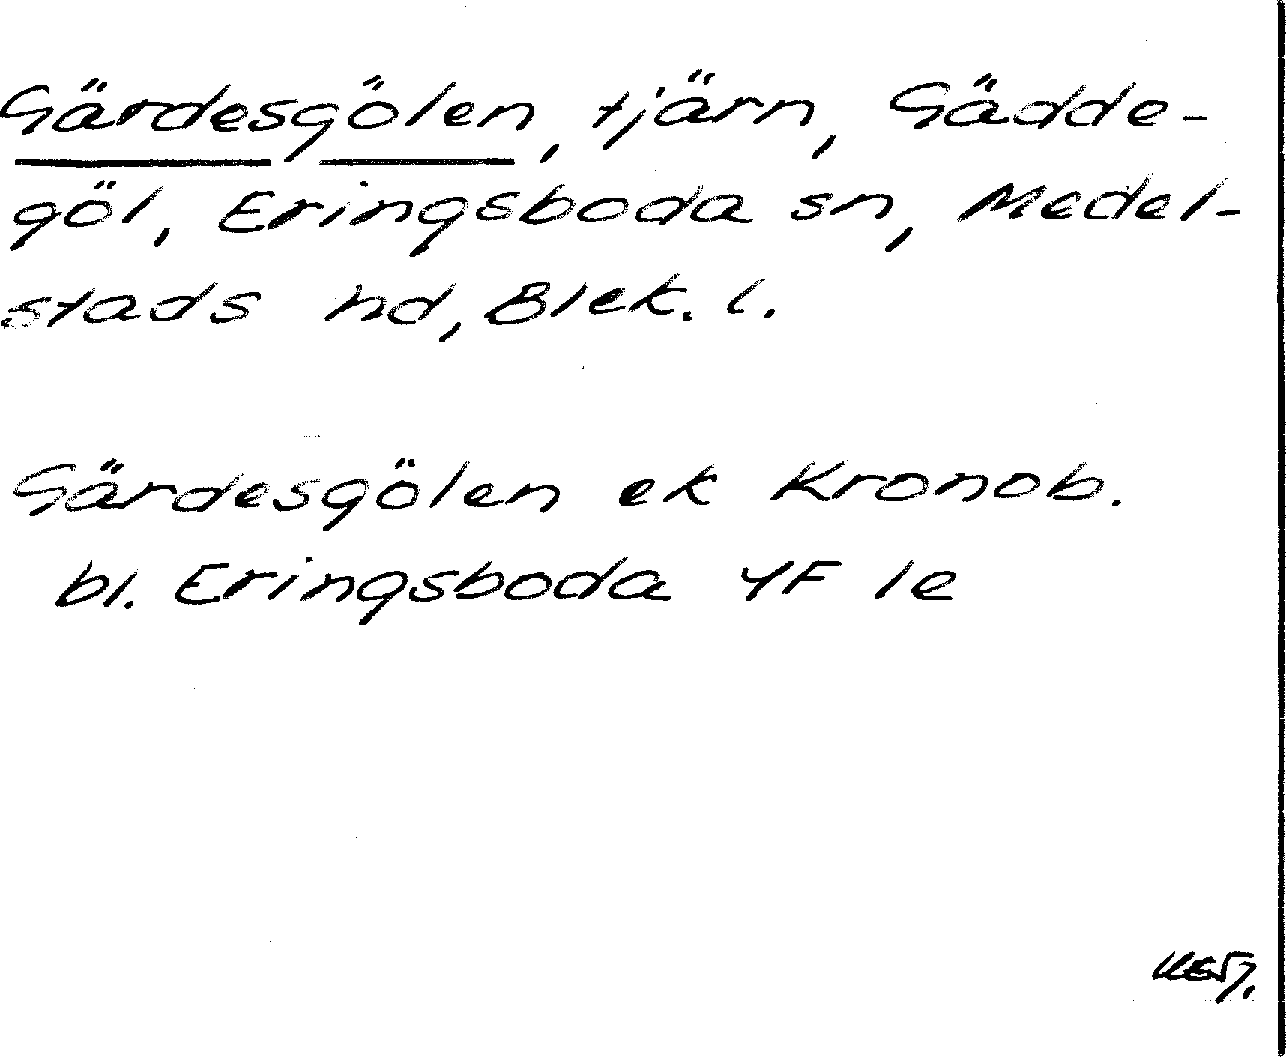 Gärdesgölen, tjärn, Gädde-
göl, Eringsboda sn, Medel-
stads hd, Blek. l.
Gärdesgölen ek Kronob.
bl. Eringsboda 4F 1e